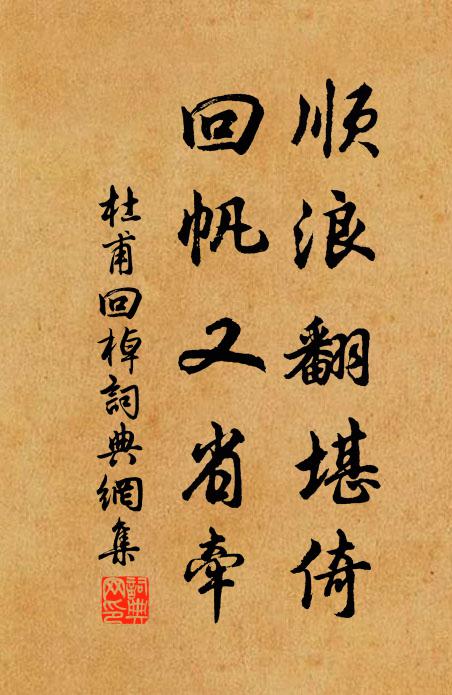 顺浪翻堪倚
回帆又省牵
杜甫回棹詞典網集
詞典网印